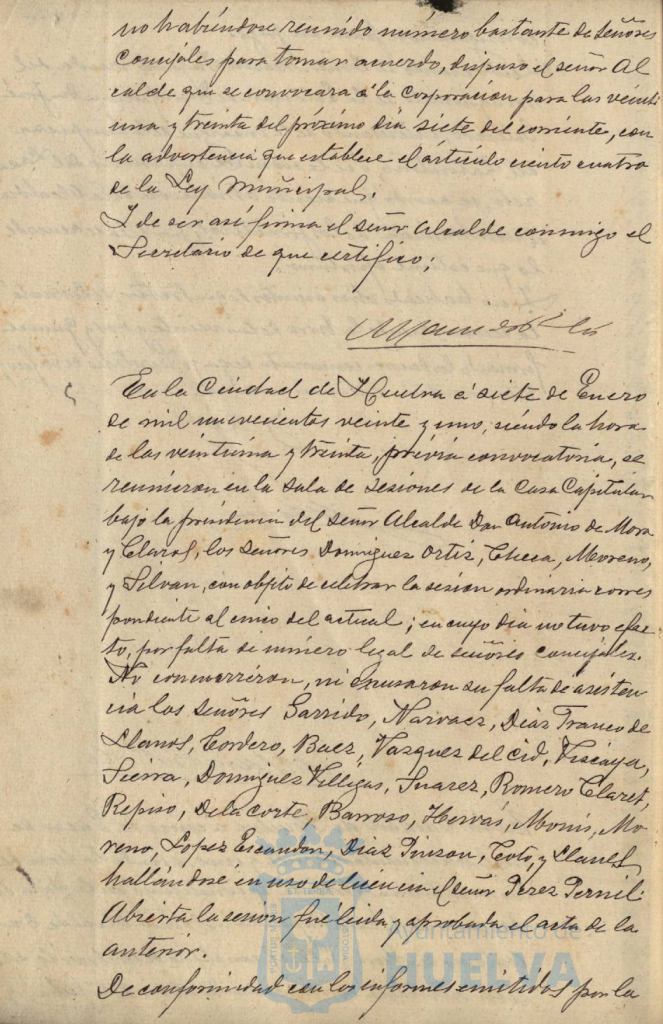 no habiéndose reunido número bastante de Señores
Concejales para tomar acuerdo, dispuso el señor Al
calde que se convocara á la Corporacion para las veinti
una y treinta del próximo dia siete del corriente, con
la advertencia que establece el artículo ciento cuatro
de la Ley Municipal.
Y de ser así firma el señor Alcalde conmigo el
Secretario de que certifico;
En la Ciudad de Huelva á siete de Enero
de mil novecientos veinte y uno, siendo la hora
de las veintiuna y treinta, prévia convocatoria, se
reunieron en la Sala de Sesiones de la Casa Capitular
bajo la presidencia del señor Alcalde Don Antonio de Mora
y Claros, los señores Dominguez Ortiz, Checa, Moreno,
y Silvan, con objeto de celebrar la sesion ordinaria corres
pondiente al cinco del actual; en cuyo dia no tuvo efec
to, por falta de número legal de señores concejales.
No concurrieron, ni excusaron su falta de asisten
cia los señores Garrido, Narvaez, Diaz Franco de
Llanos, Cordero, Baez, Vazquez del Cid, Viscaya,
Sierra, Dominguez Villegas, Suarez, Romero Claret,
Repiso, De la Corte, Barroso, Hervás, Monis, Mo
reno, Lopez Escandon, Diaz Pinzon, Coto, y Llanes
hallándose en uso de licencia el señor Perez Pernil.
Abierta la sesion fué leida y aprobada el acta de la
anterior.
De conformidad con los informes emitidos por la
Ayuntamiento de
HUELVA